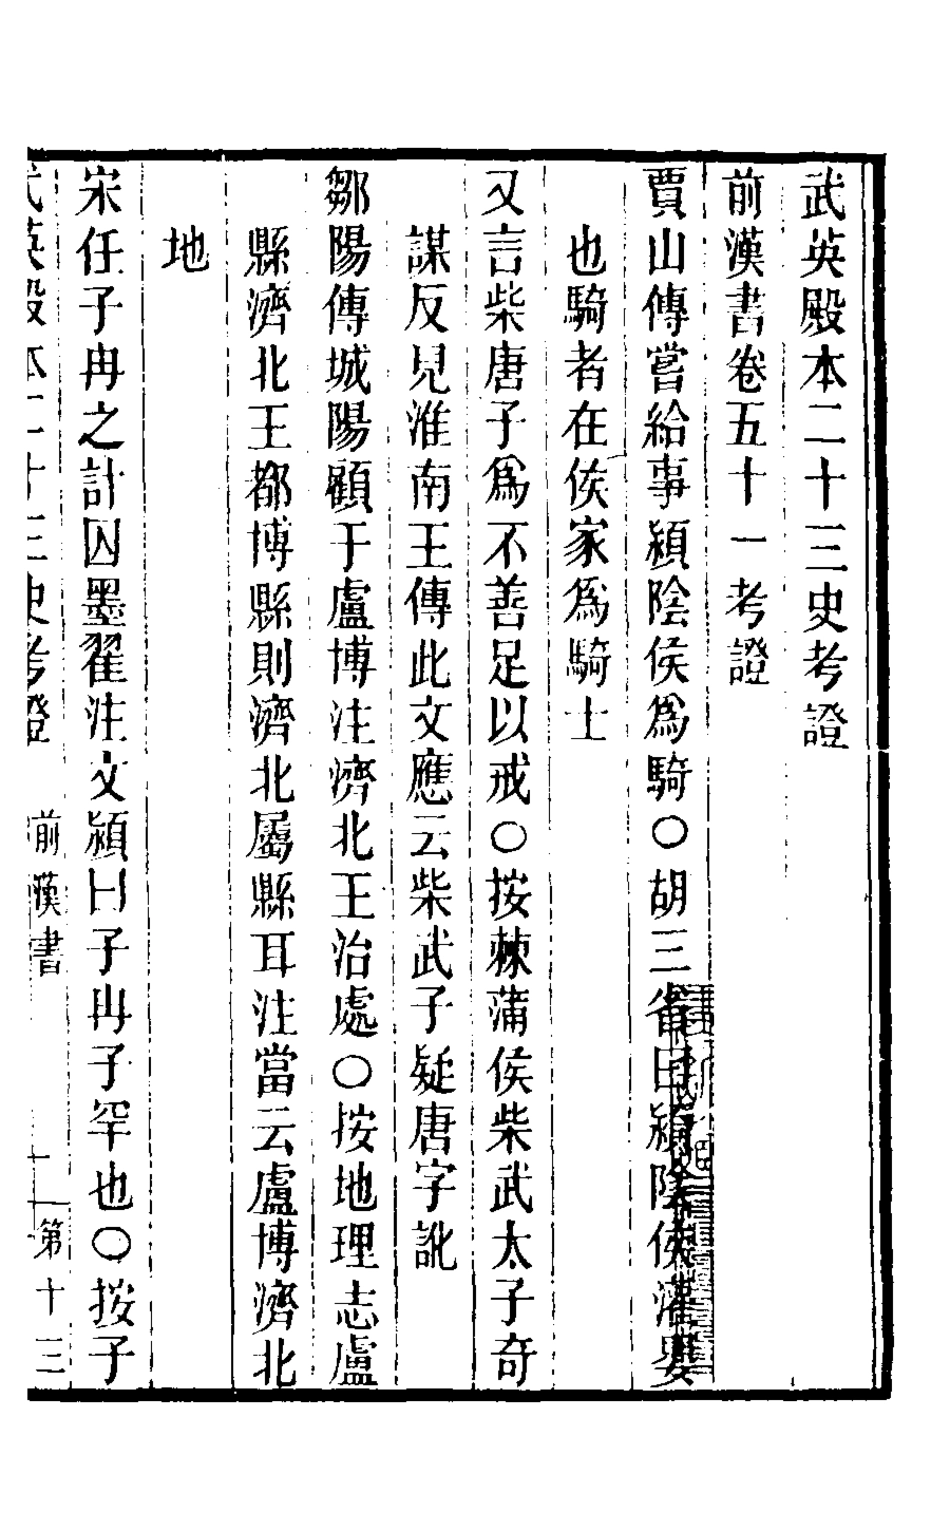 武英殿本二十三史考證
前漢書卷五十一考證
賈山傳嘗給事潁陰侯爲騎○胡三省曰潁陰侯灌嬰
也騎者在侯家爲騎士
又言柴唐子爲不善足以戒○按棘蒲侯柴武太子奇
謀反見淮南王傳此文應云柴武子疑唐字訛
鄒陽傳城陽顧于盧博注濟北王治處○按地理志盧
縣濟北王都博縣則濟北屬縣耳注當云盧博濟北
地
宋任子冉之計囚墨翟注文潁曰子冉子罕也○按子
武英殿本二十三史考證 前漢書 第十三